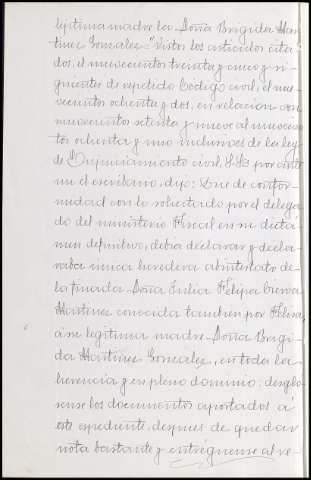 legitima madre la Doña Brigida Mar-
tinez Gonzalez: Vistos los articulos cita-
dos, el novecientos treinta y cinco y si-
guientes del repetido Codigo civil, el no-
vecientos ochenta y dos, en relacion con
novecientos setenta y nueve al novecien-
tos ochenta y uno inclusives de la ley
de Enjuiciamiento civil, S.S. por ante
mi el escribano, dijo: Que de confor-
midad con lo solicitado por el delega-
do del ministerio Fiscal en su dictá-
men definitivo, debia declarar y decla-
raba única heredera abintestato de
la finada Doña Julia Felipa
Martinez conocida tambien por Felisa,
á su legitima madre Doña Brigi-
da Martinez Gonzalez, en toda la
herencia y en pleno dominio: desglo-
sense los documentos aportados á
este expediente, despues de quedar
nota bastante y entréguense al re-